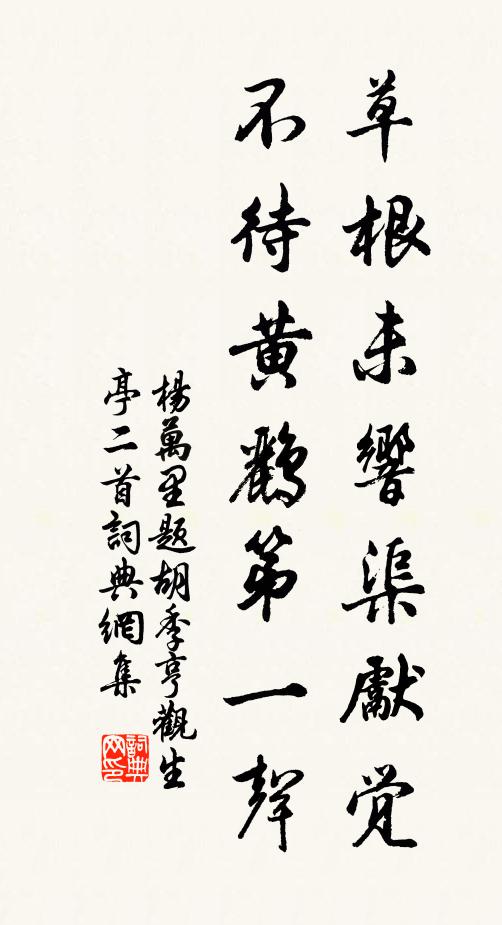 草根未響渠獻觉
不待黄鸝第一聲
楊萬里題胡季亨觀生
亭二首詞典網集
詞典网印